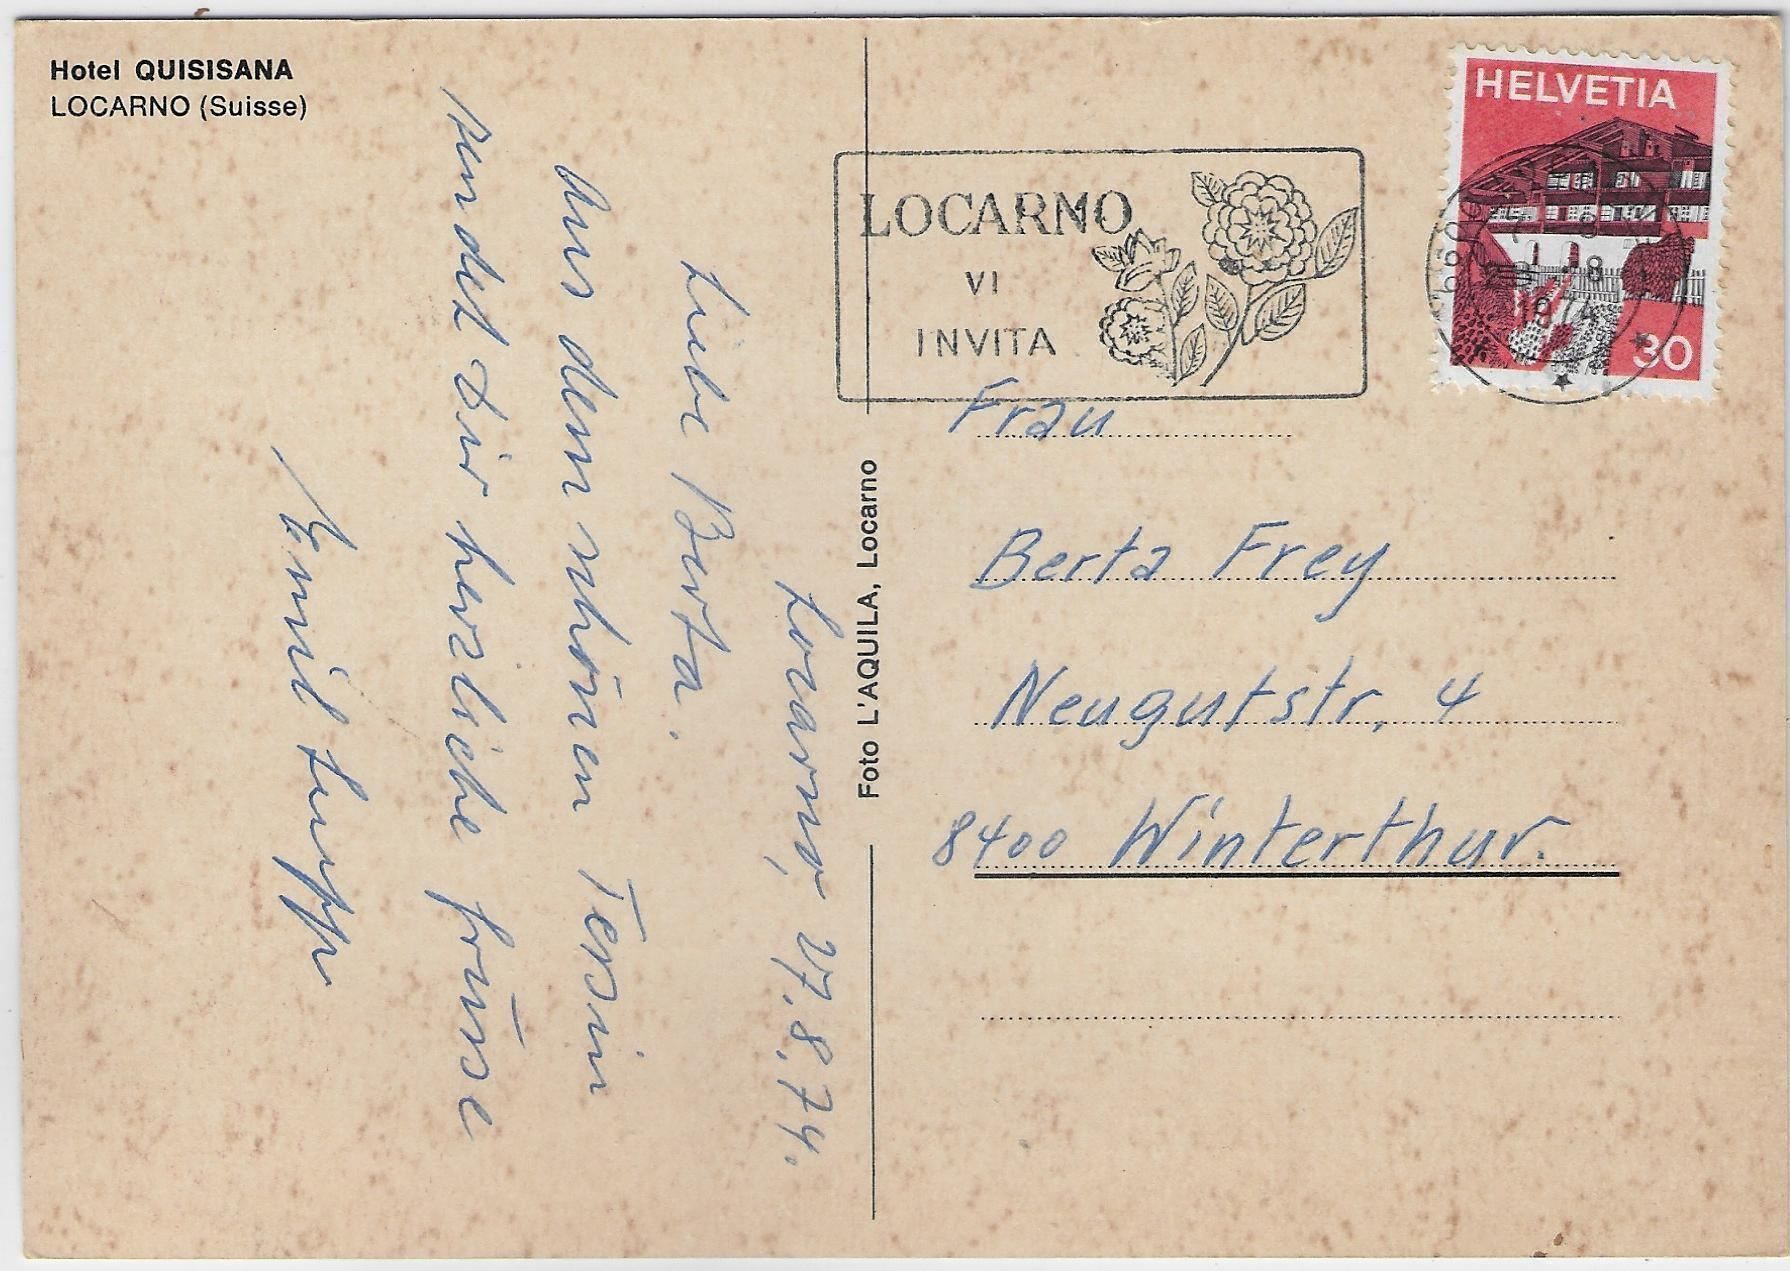 Hotel QUISISANA
LOCARNO (Suisse)
Locarno, 27.8.74.
Liebe Berta.
Aus dem schönen Tessin
sendet Dir herzliche Grüsse
Emil
Foto L'AQUILA, Locarno
LOCARNO
VI
INVITA
HELVETIA
30
6600
1974
Frau
Berta Frey
Neugutstr. 4
8400 Winterthur.